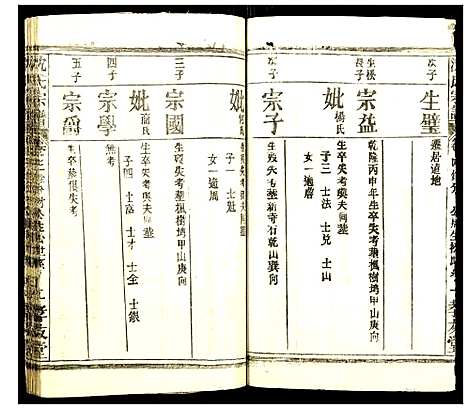 次子
生璧
遷居遠地
生松長子
宗益
乾隆丙申年生卒失考葬楓樹塆甲山庚向
妣楊氏
生卒失考與夫同塟
子三 士法 士兌 士山
女一適唐
次子
宗子
生歿失考塟新寺石乾山巽向
三子
宗國
生歿失考塟楓樹塆甲山庚向
妣
子一 士魁
女一適萬
四子
宗學
妣
生卒失考與夫同塟
子四 士富 士才 士全 士銀
五子
宗爵
無考
生卒塟俱失考